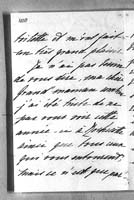 toilette et m'ont fait
un très grand plaisir.
Je n'ai pas besoin
de vous dire, ma chère
grand'maman combien
j'ai été triste de ne
pas vous voir cette
année
ainsi que tous ceux
qui vous entourent,
mais ce n'est que pas